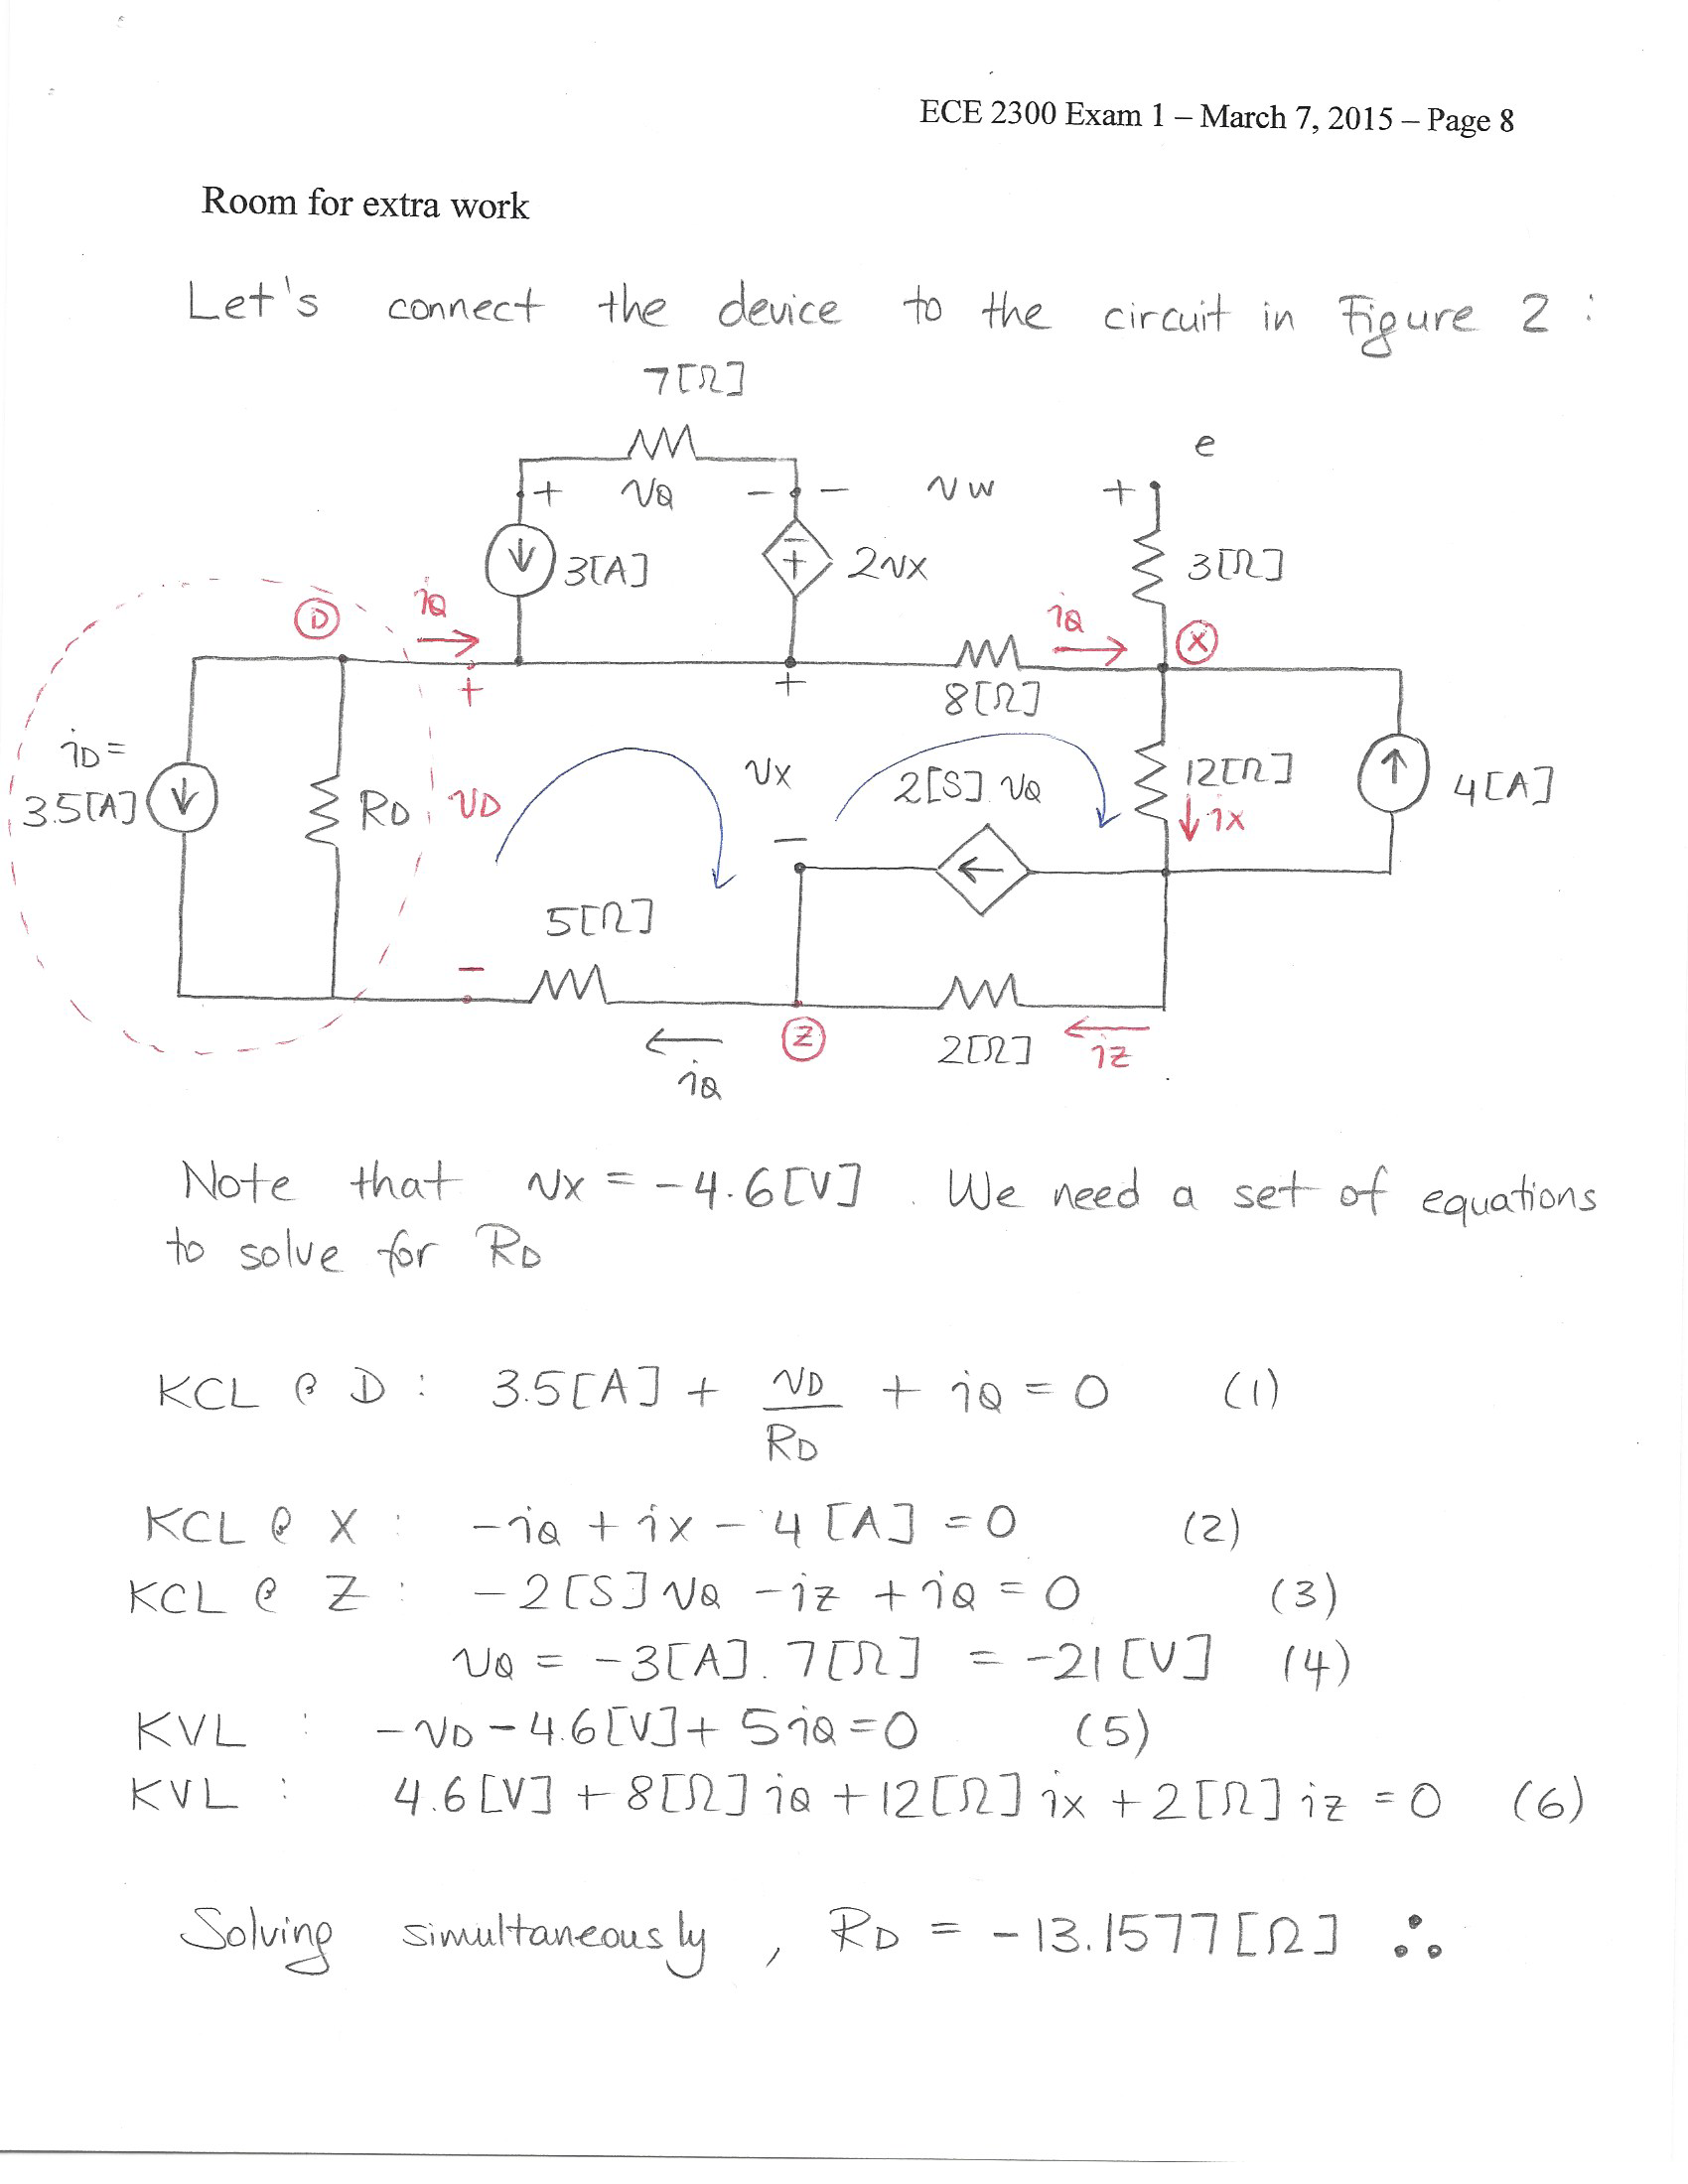 ECE 2300 Exam 1 – March 7, 2015 – Page 8
Room for extra work
Let's connect the device to the circuit in Figure 2 :
7[Ω]
e
+ vQ − − vW +
3[A]
− +
2vX
3[Ω]
D
iQ
iQ
X
+
+
8[Ω]
iD =
3.5[A]
RD
vD
vX
2[S] vQ
12[Ω]
iX
4[A]
−
5[Ω]
−
Z
2[Ω]
iZ
iQ
Note that vX = −4.6[V] . We need a set of equations
to solve for RD
KCL @ D : 3.5[A] + vD/RD + iQ = 0 (1)
KCL @ X : −iQ + iX − 4[A] = 0 (2)
KCL @ Z : −2[S] vQ − iZ + iQ = 0 (3)
vQ = −3[A] . 7[Ω] = −21[V] (4)
KVL : −vD − 4.6[V] + 5iQ = 0 (5)
KVL : 4.6[V] + 8[Ω] iQ + 12[Ω] iX + 2[Ω] iZ = 0 (6)
Solving simultaneously , RD = −13.1577[Ω] ∴